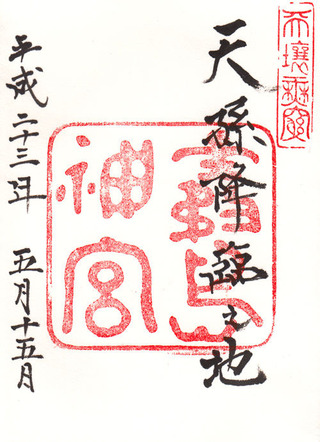 天壤無窮
天孫降臨之地
霧島
神宮
平成二十三年 五月十五日